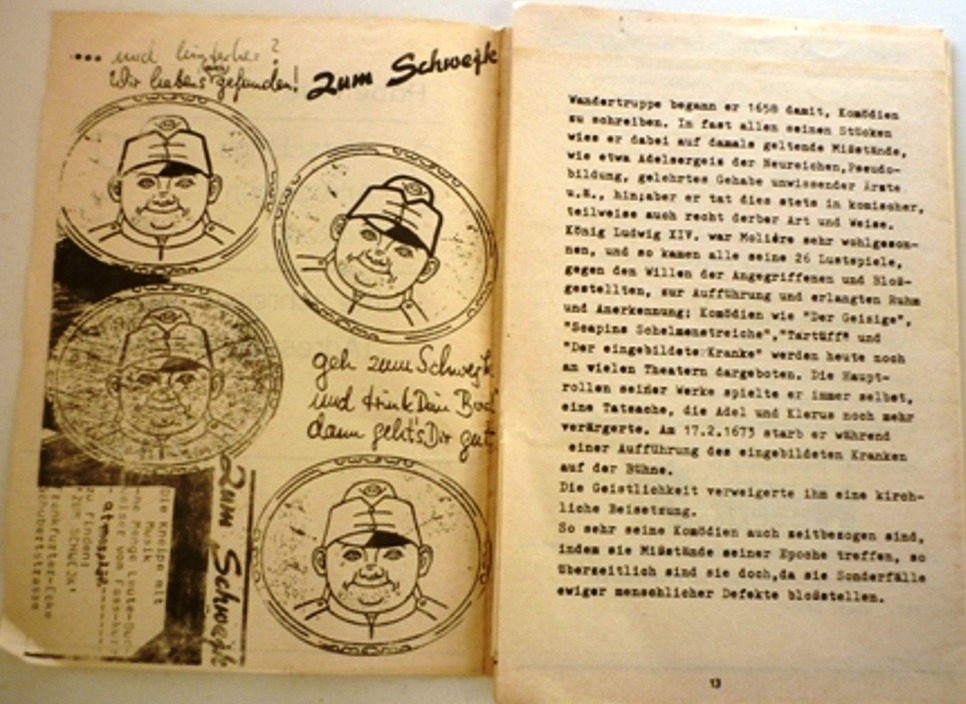 .... und hinterher?
Wir haben's gefunden!
Zum Schwejk
geh zum Schwejk
und trink Dein
dann geht's Dir gut
Zum Schwejk
Die Kneipe mit
Musik
-ne Menge Leute-
vom Fass-
-atmosphär-
zu finden:
"ZUM SCHWEJK"
Frankfurter-Ecke
Schubertstrasse
Wandertruppe begann er 1658 damit, Komödien
zu schreiben. In fast allen seinen Stücken
wies er dabei auf damals geltende Mißstände,
wie etwa Adelsergeis der Neureichen,Pseudo-
bildung, gelehrtes Gehabe unwissender Ärzte
u.ä., hin;aber er tat dies stets in komischer,
teilweise auch recht derber Art und Weise.
König Ludwig XIV. war Moliére sehr wohlgeson-
nen, und so kamen alle seine 26 Lustspiele,
gegen den Willen der Angegriffenen und Bloß-
gestellten, zur Aufführung und erlangten Ruhm
und Anerkennung; Komödien wie "Der Geizige",
"Scapins Schelmenstreiche","Tartüff" und
"Der eingebildete Kranke" werden heute noch
an vielen Theatern dargeboten. Die Haupt-
rollen seiner Werke spielte er immer selbst,
eine Tatsache, die Adel und Klerus noch mehr
verärgerte. Am 17.2.1673 starb er während
einer Aufführung des eingebildeten Kranken
auf der Bühne.
Die Geistlichkeit verweigerte ihm eine kirch-
liche Beisetzung.
So sehr seine Komödien auch zeitbezogen sind,
indem sie Mißstände seiner Epoche treffen, so
überzeitlich sind sie doch,da sie Sonderfälle
ewiger menschlicher Defekte bloßstellen.
13